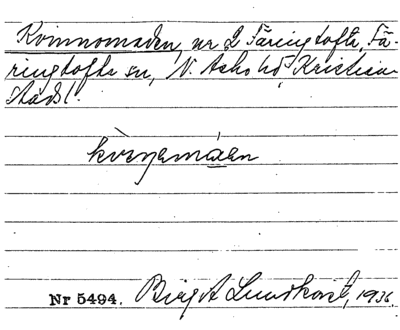 Kvinnomaden, nr 2 Färingtofta, Fä-
ringtofta sn, N. Åsbo hd, Kristian
städs l.
kvinemaen
Nr 5494. Birgit Lundkvist, 1936.